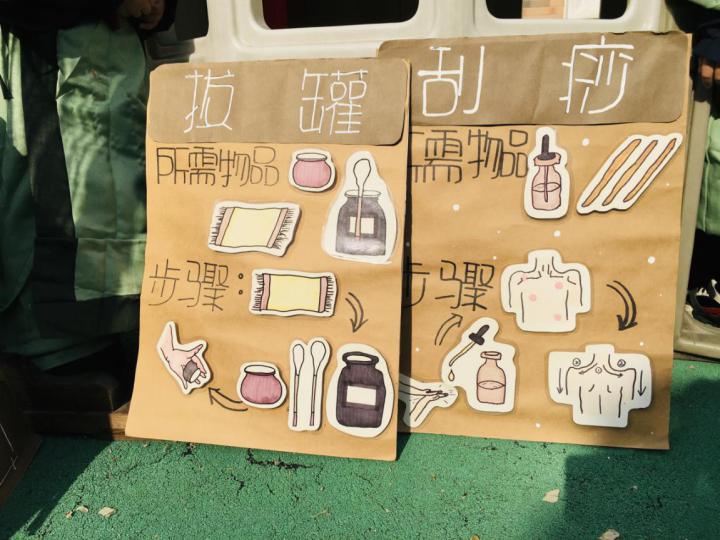 拔罐
所需物品
步骤:
刮痧
所需物品
步骤